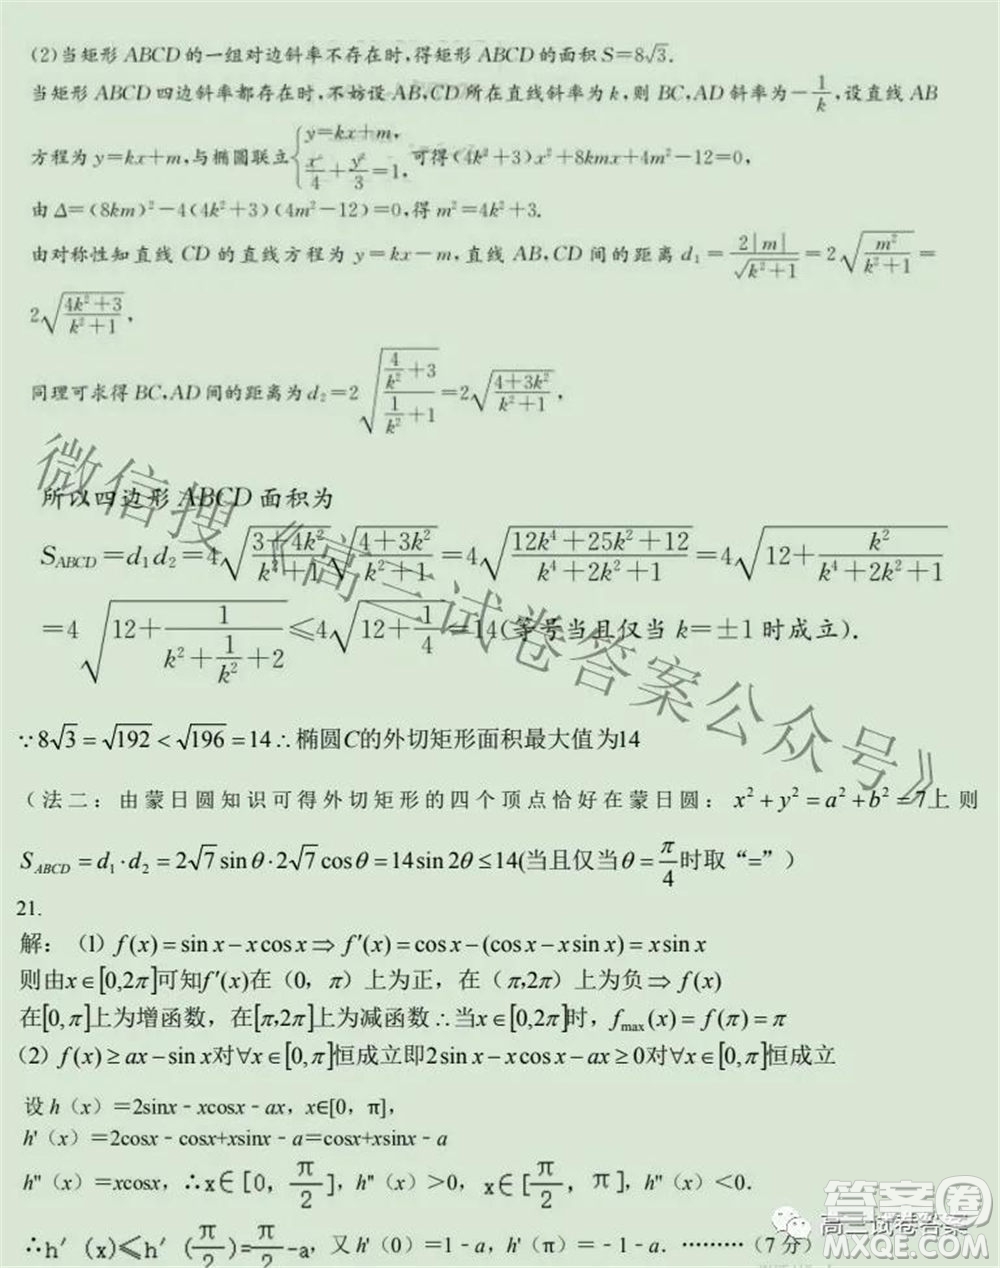 (2)当矩形 ABCD 的一组对边斜率不存在时,得矩形 ABCD 的面积 S=8√3.
当矩形 ABCD 四边斜率都存在时,不妨设 AB,CD 所在直线斜率为 k,则 BC,AD 斜率为 -1/k,设直线 AB
方程为 y=kx+m,与椭圆联立{y=kx+m, x²/4+y²/3=1, 可得(4k²+3)x²+8kmx+4m²-12=0,
由 Δ=(8km)²-4(4k²+3)(4m²-12)=0,得 m²=4k²+3.
由对称性知直线 CD 的直线方程为 y=kx-m,直线 AB,CD 间的距离 d₁=2|m|/√(k²+1)=2√(m²/(k²+1))=
2√((4k²+3)/(k²+1)),
同理可求得 BC,AD 间的距离为 d₂=2√((4/k²+3)/(1/k²+1))=2√((4+3k²)/(k²+1)),
所以四边形 ABCD 面积为
S_ABCD=d₁d₂=4√((3+4k²)/(k²+1))√((4+3k²)/(k²+1))=4√((12k⁴+25k²+12)/(k⁴+2k²+1))=4√(12+k²/(k⁴+2k²+1))
=4√(12+1/(k²+1/k²+2))≤4√(12+1/4)=14(等号当且仅当 k=±1 时成立).
∵8√3=√192<√196=14∴椭圆C的外切矩形面积最大值为14
(法二:由蒙日圆知识可得外切矩形的四个顶点恰好在蒙日圆:x²+y²=a²+b²=7上则
S_ABCD=d₁·d₂=2√7sinθ·2√7cosθ=14sin2θ≤14(当且仅当θ=π/4时取“=”)
21.
解:(1) f(x)=sin x-x cos x⇒f′(x)=cos x-(cos x-x sin x)=x sin x
则由x∈[0,2π]可知f′(x)在(0,π)上为正,在(π,2π)上为负⇒f(x)
在[0,π]上为增函数,在[π,2π]上为减函数∴当x∈[0,2π]时,f_max(x)=f(π)=π
(2) f(x)≥ax-sin x对∀x∈[0,π]恒成立即2sin x-x cos x-ax≥0对∀x∈[0,π]恒成立
设 h(x)=2sinx﹣xcosx﹣ax,x∈[0,π],
h'(x)=2cosx﹣cosx+xsinx﹣a=cosx+xsinx﹣a
h''(x)=xcosx,∴x∈[0,π/2],h''(x)>0,x∈[π/2,π],h''(x)<0.
∴h′(x)≤h′(π/2)=π/2-a,又 h'(0)=1﹣a,h'(π)=﹣1﹣a.………(7 分)
微信搜《高三试卷答案公众号》
高三试卷答案
答案圈
MXQE.COM